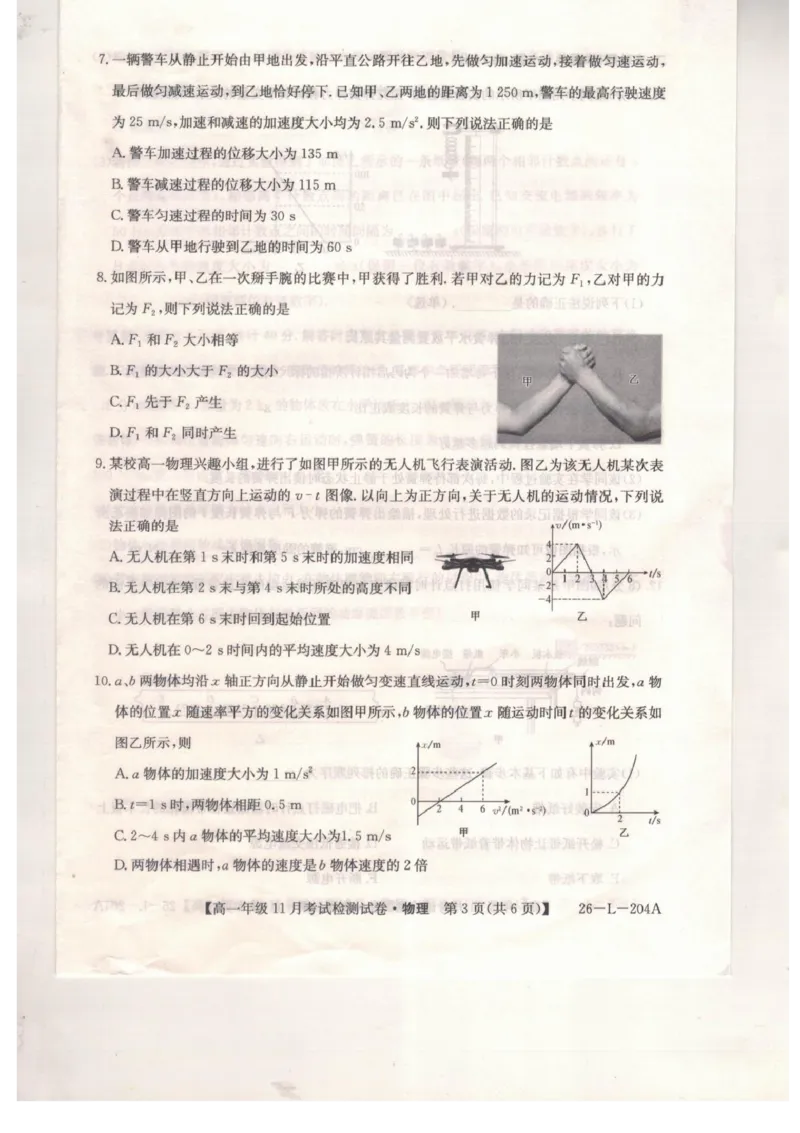 7. 一辆警车从静止开始由甲地出发,沿平直公路开往乙地,先做匀加速运动,接着做匀速运动,
最后做匀减速运动,到乙地恰好停下. 已知甲、乙两地的距离为 1 250 m,警车的最高行驶速度
为 25 m/s,加速和减速的加速度大小均为 2.5 m/s². 则下列说法正确的是
A. 警车加速过程的位移大小为 135 m
B. 警车减速过程的位移大小为 115 m
C. 警车匀速过程的时间为 30 s
D. 警车从甲地行驶到乙地的时间为 60 s
8. 如图所示,甲、乙在一次掰手腕的比赛中,甲获得了胜利. 若甲对乙的力记为 F₁,乙对甲的力
记为 F₂,则下列说法正确的是
A. F₁ 和 F₂ 大小相等
B. F₁ 的大小大于 F₂ 的大小
C. F₁ 先于 F₂ 产生
D. F₁ 和 F₂ 同时产生
甲 乙
9. 某校高一物理兴趣小组,进行了如图甲所示的无人机飞行表演活动. 图乙为该无人机某次表
演过程中在竖直方向上运动的 v-t 图像. 以向上为正方向,关于无人机的运动情况,下列说
法正确的是
A. 无人机在第 1 s 末时和第 5 s 末时的加速度相同
B. 无人机在第 2 s 末与第 4 s 末时所处的高度不同
C. 无人机在第 6 s 末时回到起始位置
D. 无人机在 0~2 s 时间内的平均速度大小为 4 m/s
甲
v/(m•s⁻¹)
4
2
0 1 2 3 4 5 6 t/s
-2
-4
乙
10. a、b 两物体均沿 x 轴正方向从静止开始做匀变速直线运动,t=0 时刻两物体同时出发,a 物
体的位置 x 随速率平方的变化关系如图甲所示,b 物体的位置 x 随运动时间 t 的变化关系如
图乙所示,则
A. a 物体的加速度大小为 1 m/s²
B. t=1 s 时,两物体相距 0.5 m
C. 2~4 s 内 a 物体的平均速度大小为1.5 m/s
D. 两物体相遇时,a 物体的速度是 b 物体速度的 2 倍
x/m
2
0 2 4 6 v²/(m²•s⁻²)
甲
x/m
1
0 2 t/s
乙
【高一年级 11 月考试检测试卷·物理 第 3 页(共 6 页)】 26-L-204A